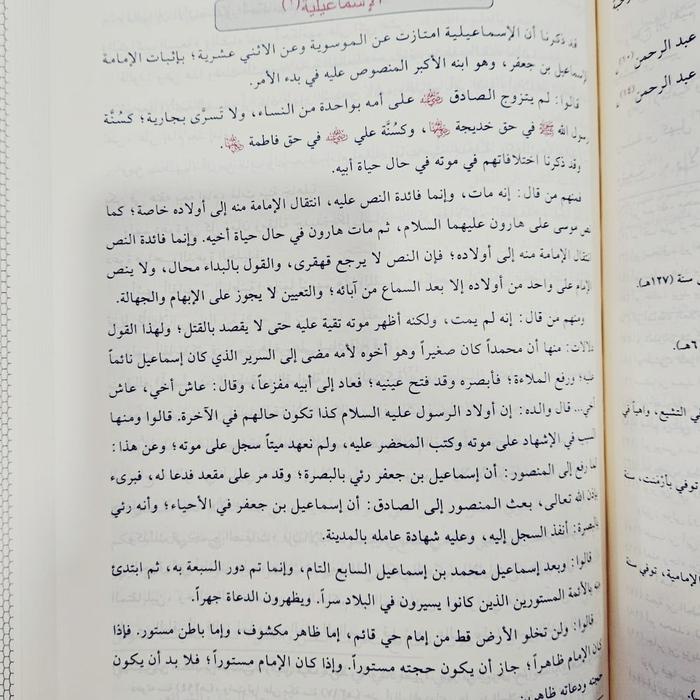 الإسماعيلية (١)
قد ذكرنا أن الإسماعيلية امتازت عن الموسوية وعن الاثني عشرية؛ بإثبات الإمامة
لإسماعيل بن جعفر، وهو ابنه الأكبر المنصوص عليه في بدء الأمر.
قالوا: لم يتزوج الصادق على أمه بواحدة من النساء، ولا تَسرَّى بجارية؛ كسُنَّة
رسول الله ﷺ في حق خديجة، وكسُنَّة علي في حق فاطمة.
وقد ذكرنا اختلافاتهم في موته في حال حياة أبيه.
فمنهم من قال: إنه مات، وإنما فائدة النص عليه، انتقال الإمامة منه إلى أولاده خاصة؛ كما
نص موسى على هارون عليهما السلام، ثم مات هارون في حال حياة أخيه. وإنما فائدة النص
انتقال الإمامة منه إلى أولاده؛ فإن النص لا يرجع قهقرى، والقول بالبداء محال، ولا ينص
الإمام على واحد من أولاده إلا بعد السماع من آبائه؛ والتعيين لا يجوز على الإبهام والجهالة.
ومنهم من قال: إنه لم يمت، ولكنه أظهر موته تقية عليه حتى لا يقصد بالقتل؛ ولهذا القول
دلالات: منها أن محمداً كان صغيراً وهو أخوه لأمه مضى إلى السرير الذي كان إسماعيل نائماً
عليه؛ ورفع الملاءة؛ فأبصره وقد فتح عينيه؛ فعاد إلى أبيه مفزعاً، وقال: عاش أخي، عاش
أخي... قال والده: إن أولاد الرسول عليه السلام كذا تكون حالهم في الآخرة. قالوا ومنها
السبب في الإشهاد على موته وكتب المحضر عليه، ولم نعهد ميتاً سجل على موته؛ وعن هذا:
لما رفع إلى المنصور: أن إسماعيل بن جعفر رئي بالبصرة؛ وقد مر على مقعد فدعا له، فبرىء
بإذن الله تعالى، بعث المنصور إلى الصادق: أن إسماعيل بن جعفر في الأحياء؛ وأنه رئي
بالبصرة: أنفذ السجل إليه، وعليه شهادة عامله بالمدينة.
قالوا: وبعد إسماعيل محمد بن إسماعيل السابع التام، وإنما تم دور السبعة به، ثم ابتدئ
منه بالأئمة المستورين الذين كانوا يسيرون في البلاد سراً. ويظهرون الدعاة جهراً.
قالوا: ولن تخلو الأرض قط من إمام حي قائم، إما ظاهر مكشوف، وإما باطن مستور. فإذا
كان الإمام ظاهراً؛ جاز أن يكون حجته مستوراً. وإذا كان الإمام مستوراً؛ فلا بد أن يكون
حجته ودعاته ظاهرين
عبد الرحمن (١٠)
عبد الرحمن (١٤)
سنة (١٢٧هـ).
في التشيع، واهياً في
توفي بأرّمنت، سنة
الإمامية، توفي سنة